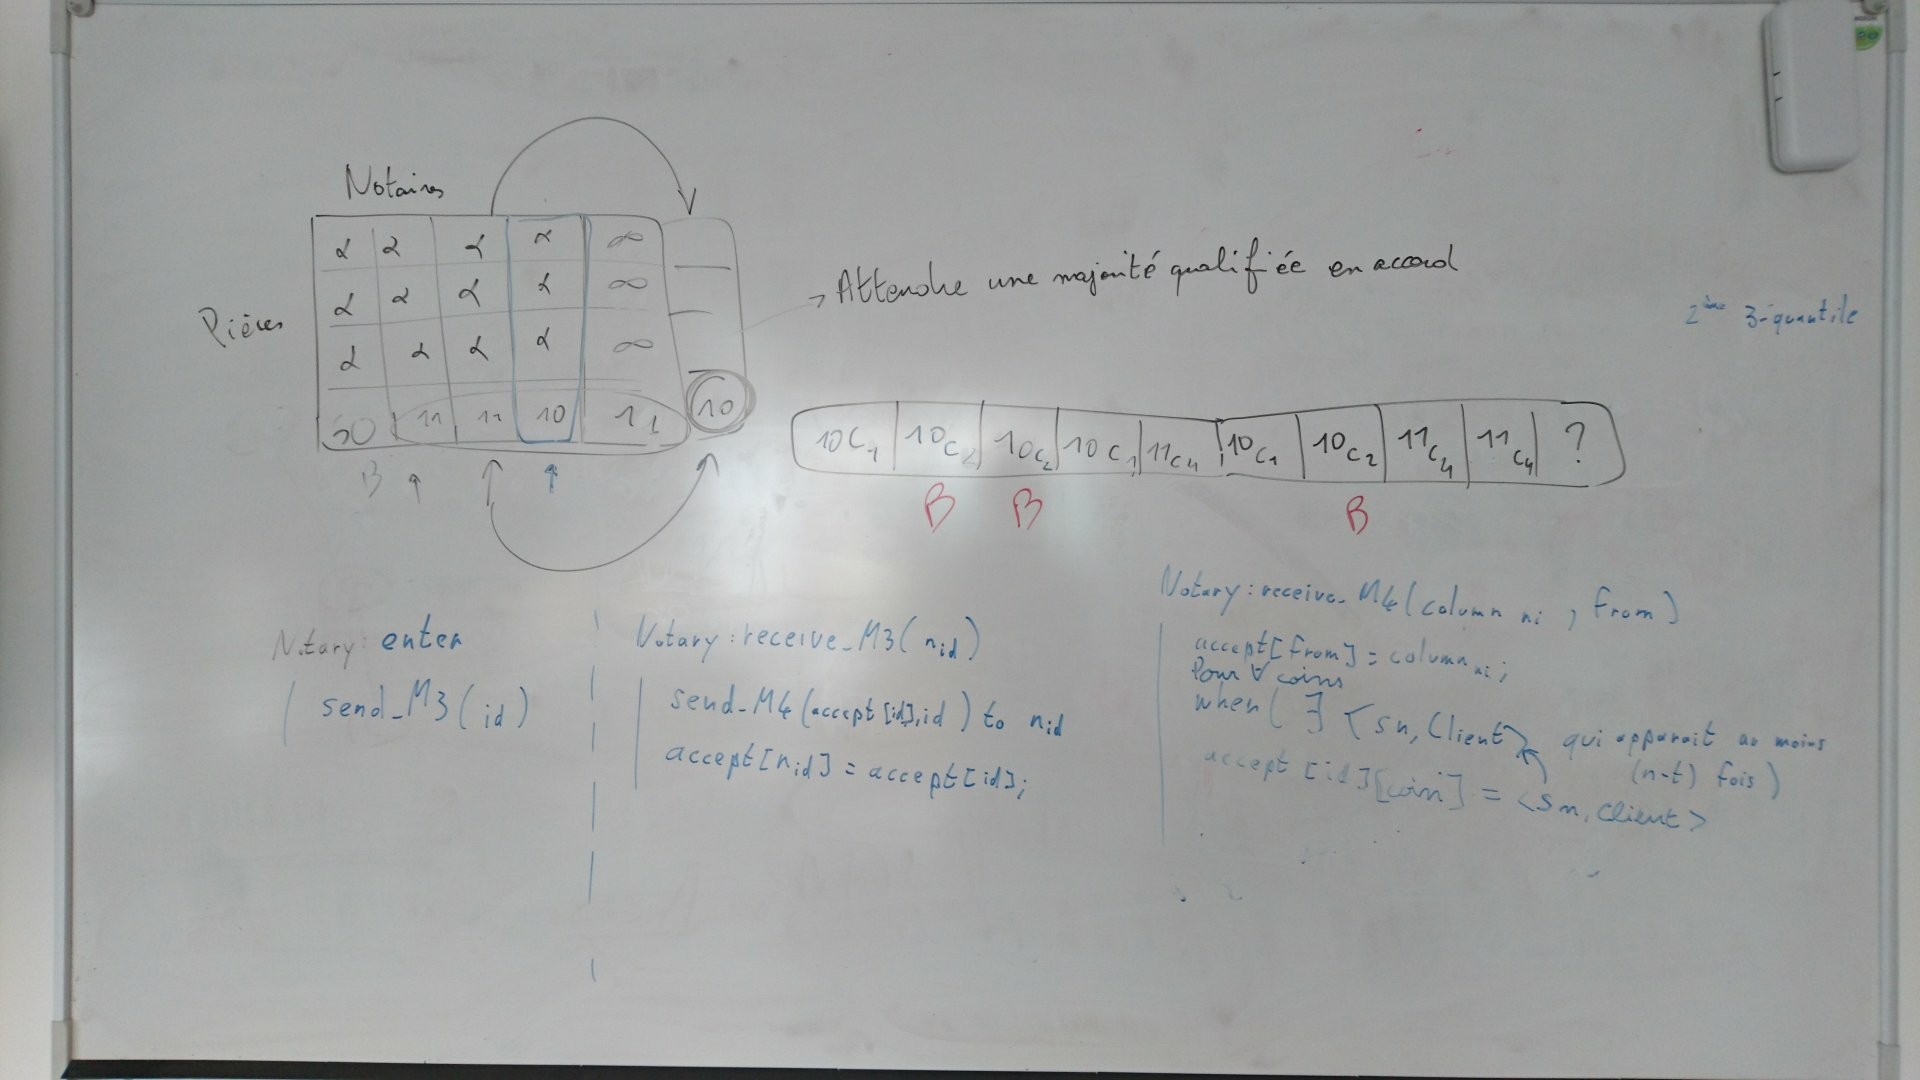 Notaires
Pièces
α α α α ∞
α α α α ∞
α α α α ∞
50 11 11 10 11 10
B
→ Attendre une majorité qualifiée en accord
2ème 3-quantile
10C1 10C2 10C2 10C1 11C4 10C1 10C2 11C4 11C4 ?
B B B
Notary: enter
send_M3(id)
Notary: receive_M3(nid)
send_M4(accept[id],id) to nid
accept[nid] = accept[id];
Notary: receive_M4(column ni, From)
accept[from] = column ni;
Pour ∀ coins
when( ∃ <sn, Client> qui apparait au moins
(n-t) fois)
accept[id][coin] = <sn, Client>